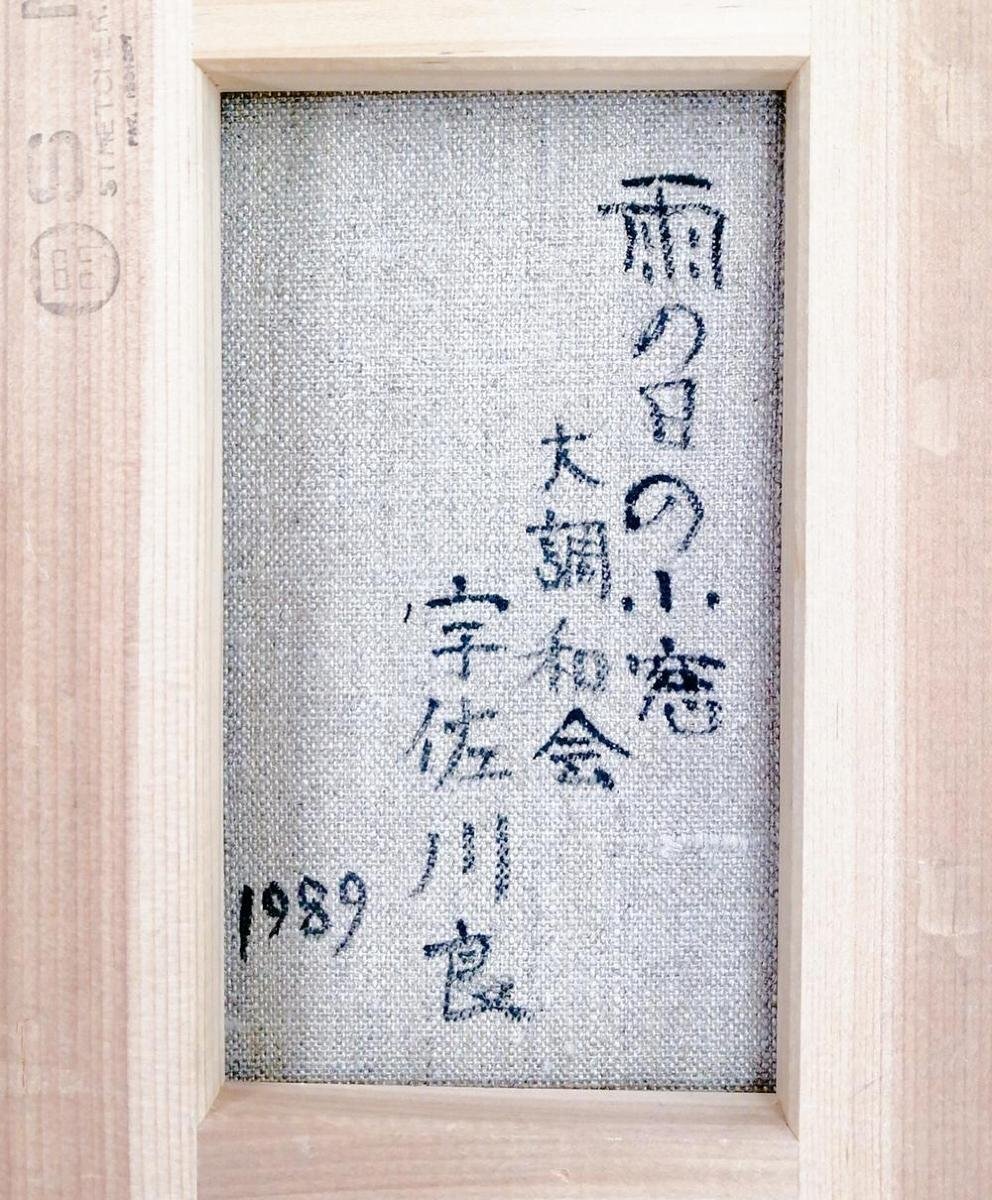 雨の日の小窓
大調和会
宇佐川良
1989
STRETCHER.